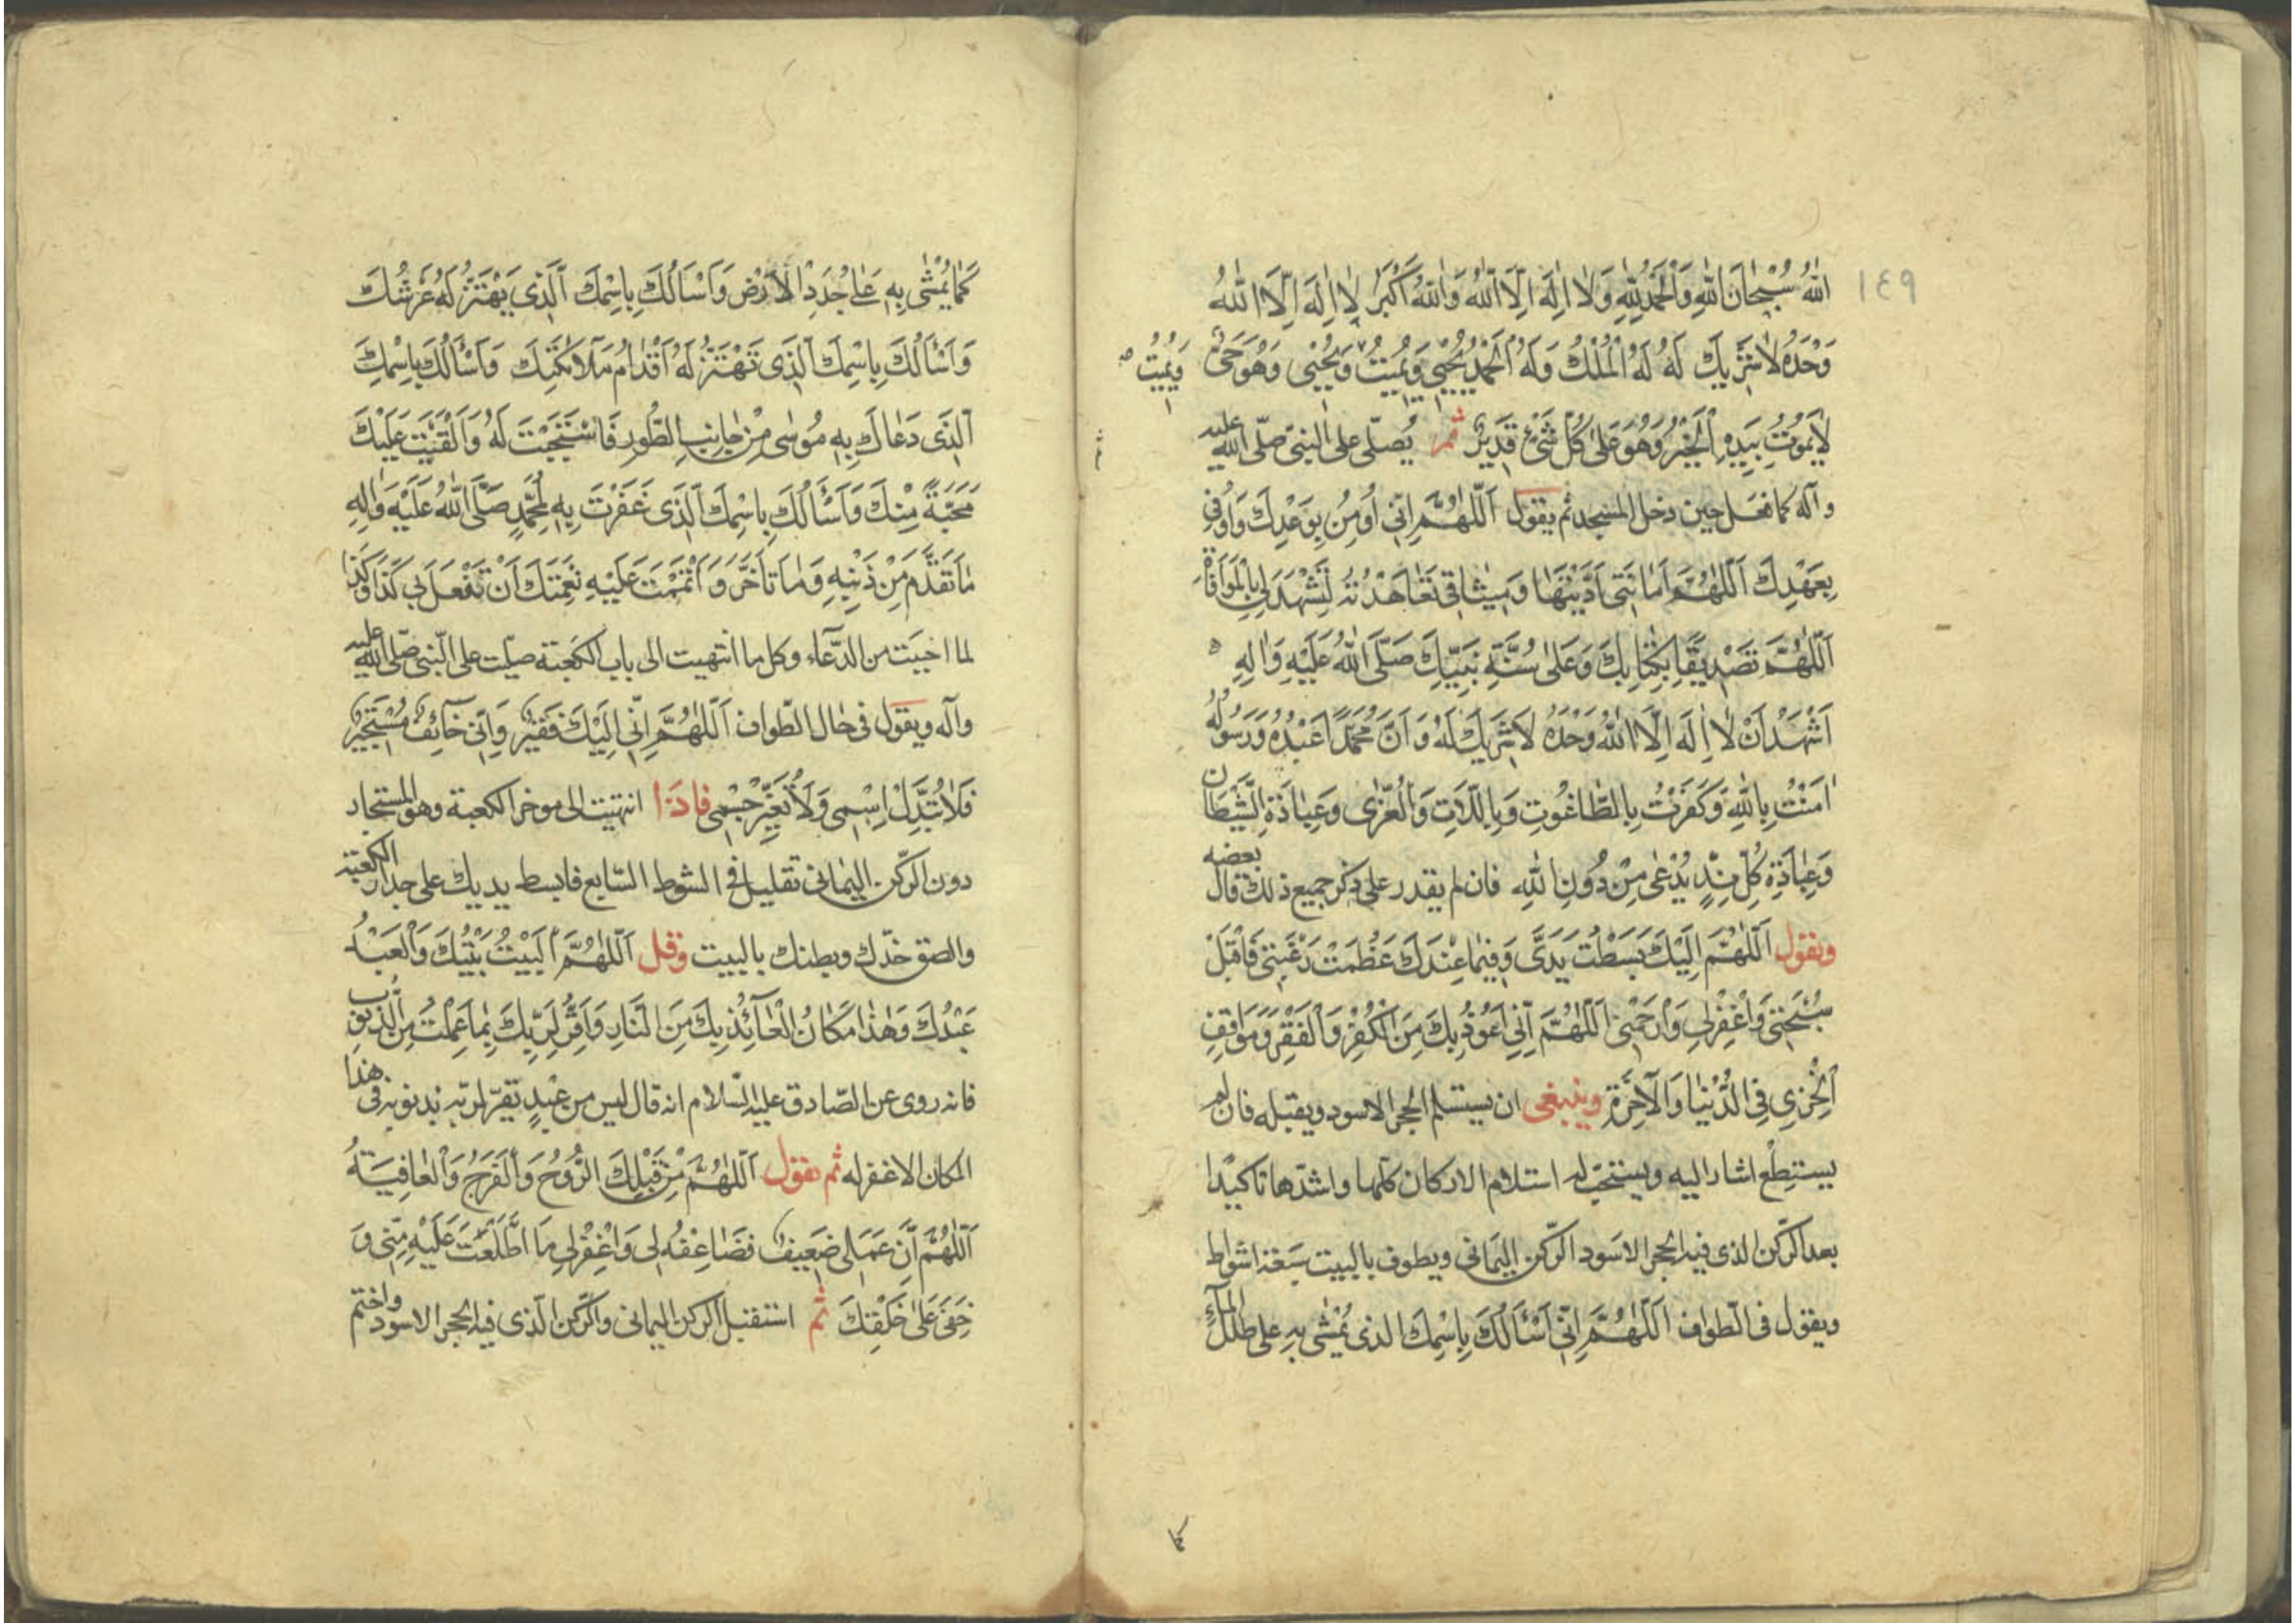 ١٤٩
اللهُ سُبْحَانَ اللهِ وَالْحَمْدُ لِلّٰهِ وَلَا اِلٰهَ اِلَّا اللهُ وَاللهُ اَكْبَرُ لَا اِلٰهَ اِلَّا اللهُ
وَحْدَهُ لَا شَرِيكَ لَهُ لَهُ الْمُلْكُ وَلَهُ الْحَمْدُ يُحْيِي وَيُمِيتُ وَيُحْيِي وَهُوَ حَيٌّ
وَيُمِيتُ
لَا يَمُوتُ بِيَدِهِ الْخَيْرُ وَهُوَ عَلَى كُلِّ شَيْءٍ قَدِيرٌ ثم يُصلّى على النبىّ صلّى الله عليه
وآله كما فعل حين دخل المسجد ثم يقول اَللّٰهُمَّ اِنّى اُومِنُ بِوَعْدِكَ وَاُوفِي
بِعَهْدِكَ اَللّٰهُمَّ اَمَانَتِي اَدَّيْتُهَا وَمِيثَاقِي تَعَاهَدْتُهُ لِتَشْهَدَ لِي بِالْمُوَافَاةِ
اَللّٰهُمَّ تَصْدِيقًا بِكِتَابِكَ وَعَلَى سُنَّةِ نَبِيِّكَ صَلَّى اللهُ عَلَيْهِ وَاٰلِهِ
اَشْهَدُ اَنْ لَا اِلٰهَ اِلَّا اللهُ وَحْدَهُ لَا شَرِيكَ لَهُ وَاَنَّ مُحَمَّدًا عَبْدُهُ وَرَسُولُهُ
اٰمَنْتُ بِاللهِ وَكَفَرْتُ بِالطَّاغُوتِ وَبِاللَّاتِ وَالْعُزّٰى وَعِبَادَةِ الشَّيْطَانِ
وَعِبَادَةِ كُلِّ نِدٍّ يُدْعٰى مِنْ دُونِ اللهِ فان لم يقدر على ذكر جميع ذلك قال بعضه
ويقول اَللّٰهُمَّ اِلَيْكَ بَسَطْتُ يَدَىَّ وَفِيمَا عِنْدَكَ عَظُمَتْ رَغْبَتِي فَاقْبَلْ
سُبْحَتِي وَاغْفِرْ لِي وَارْحَمْنِي اَللّٰهُمَّ اِنِّي اَعُوذُ بِكَ مِنَ الْكُفْرِ وَالْفَقْرِ وَمَوَاقِفِ
الْخِزْيِ فِي الدُّنْيَا وَالْآخِرَةِ وينبغى ان يستلم الحجر الاسود ويقبله فان لم
يستطع اشار اليه ويستحبّ له استلام الاركان كلّها واشدّها تاكيدا
بعد الرّكن الذى فيه الحجر الاسود الرّكن اليمانى ويطوف بالبيت سبعة اشواط
ويقول فى الطواف اَللّٰهُمَّ اِنّى اَسْأَلُكَ بِاسْمِكَ الذى يُمْشٰى بِهِ على طلل الماء
كَمَا يُمْشٰى بِهِ عَلٰى جُدَدِ الْاَرْضِ وَاَسْاَلُكَ بِاسْمِكَ الَّذِي يَهْتَزُّ لَهُ عَرْشُكَ
وَاَسْأَلُكَ بِاسْمِكَ الَّذِى تَهْتَزُّ لَهُ اَقْدَامُ مَلَائِكَتِكَ وَاَسْأَلُكَ بِاسْمِكَ
الَّذِى دَعَاكَ بِهِ مُوسٰى مِنْ جَانِبِ الطُّورِ فَاسْتَجَبْتَ لَهُ وَاَلْقَيْتَ عَلَيْكَ
مَحَبَّةً مِنْكَ وَاَسْأَلُكَ بِاسْمِكَ الَّذِى غَفَرْتَ بِهِ لِمُحَمَّدٍ صَلَّى اللهُ عَلَيْهِ وَاٰلِهِ
مَا تَقَدَّمَ مِنْ ذَنْبِهِ وَمَا تَاَخَّرَ وَاَتْمَمْتَ عَلَيْهِ نِعْمَتَكَ اَنْ تَفْعَلَ بِي كَذَا وَكَذَا
لما احببت من الدّعاء وكل ما انتهيت الى باب الكعبة صلّيت على النّبى صلّى الله عليه
وآله ويقول فى حال الطّواف اَللّٰهُمَّ اِنّى اِلَيْكَ فَقِيرٌ وَاِنّى خَائِفٌ مُسْتَجِيرٌ
فَلَا تُبَدِّلْ اِسْمِى وَلَا تُغَيِّرْ جِسْمِى فاذا انتهيت الى موخر الكعبة وهو المستجار
دون الرّكن اليمانى بقليل فى الشوط السّابع فابسط يديك على جدار الكعبة
والصق خدّك وبطنك بالبيت وقل اَللّٰهُمَّ الْبَيْتُ بَيْتُكَ وَالْعَبْدُ
عَبْدُكَ وَهٰذَا مَكَانُ الْعَائِذِ بِكَ مِنَ النَّارِ وَاَقِرُّ لِرَبِّكَ بِمَا عَمِلْتَ مِنَ الذُّنُوبِ
فانه روى عن الصّادق عليه السّلام انه قال ليس من عبدٍ يقرّ لربّه بذنوبه فى هذا
المكان الا غفر له ثم يقول اَللّٰهُمَّ مِنْ قِبَلِكَ الرَّوْحُ وَالْفَرَجُ وَالْعَافِيَةُ
اَللّٰهُمَّ اِنَّ عَمَلِى ضَعِيفٌ فَضَاعِفْهُ لِى وَاغْفِرْ لِي مَا اطَّلَعْتَ عَلَيْهِ مِنِّى وَ
خَفِىَ عَلٰى خَلْقِكَ ثم استقبل الركن اليمانى والرّكن الّذى فيه الحجر الاسود واختم